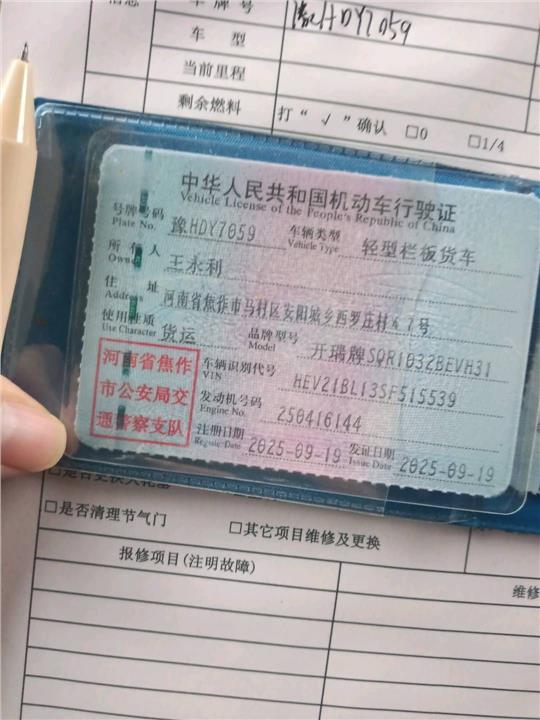 车牌号
豫HDY7059
车 型
当前里程
剩余燃料
打“√”确认 □0 □1/4
中华人民共和国机动车行驶证
Vehicle License of the People's Republic of China
号牌号码 豫HDY7059 车辆类型 轻型栏板货车
Plate No. Vehicle Type
所有人 王永利
Owner
住 址 河南省焦作市马村区安阳城乡西罗庄村47号
Address
使用性质 货运 品牌型号 开瑞牌SQR1032BEVH31
Use Character Model
河南省焦作
市公安局交
通警察支队
车辆识别代号 HEV21BL13SF515539
VIN
发动机号码 250416144
Engine No.
注册日期 2025-09-19 发证日期 2025-09-19
Register Date Issue Date
□是否清理节气门 □其它项目维修及更换
报修项目(注明故障) 维修